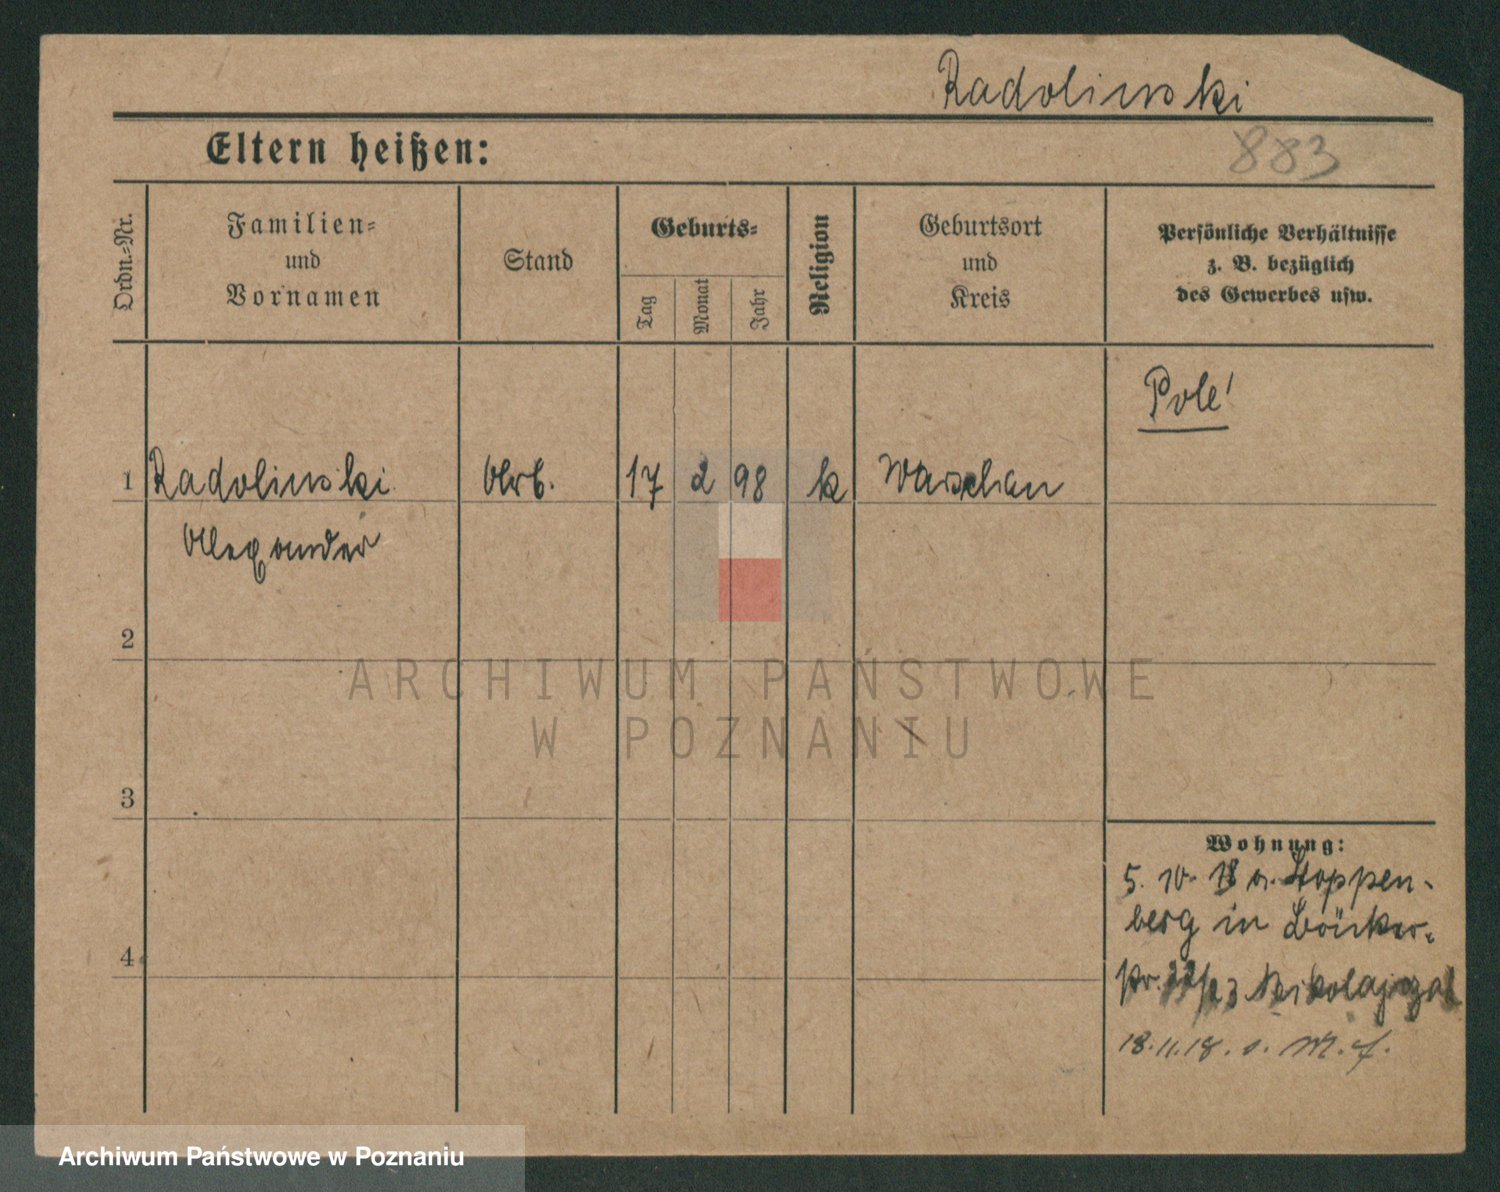 Radolinski
883
Eltern heißen:
Ordn.=Nr.
Familien=
und
Vornamen
Stand
Geburts=
Tag
Monat
Jahr
Religion
Geburtsort
und
Kreis
Persönliche Verhältnisse
z. B. bezüglich
des Gewerbes usw.
Pole!
1 Radolinski Arb. 17 2 98 k Warschau
Alexander
2
ARCHIWUM PAŃSTWOWE
W POZNANIU
3
Wohnung:
5. 10. 18 a. Stoppen-
berg in Bäcker-
str. 22/23 Nikolajczak
4
18.11.18. v. M. f.
Archiwum Państwowe w Poznaniu